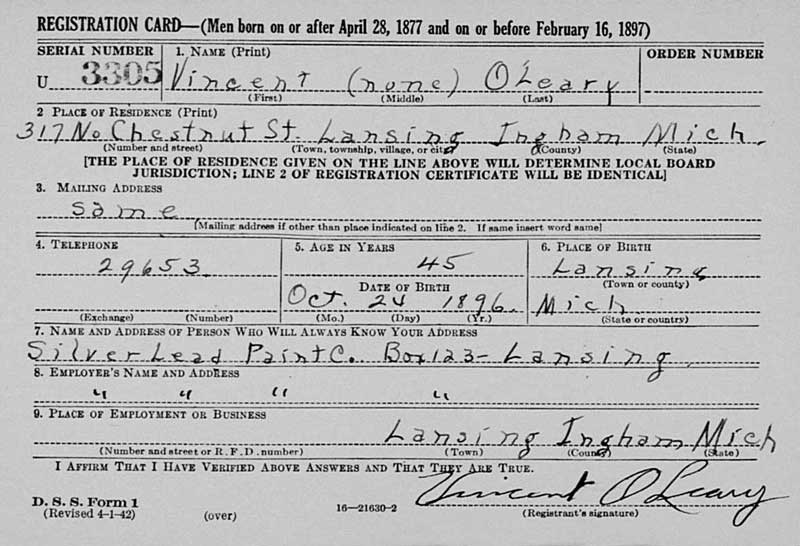 REGISTRATION CARD—(Men born on or after April 28, 1877 and on or before February 16, 1897)
SERIAL NUMBER 1. NAME (Print) ORDER NUMBER
U 3305 Vincent (none) O'Leary
(First) (Middle) (Last)
2 PLACE OF RESIDENCE (Print)
317 No Chestnut St. Lansing Ingham Mich.
(Number and street) (Town, township, village, or city) (County) (State)
[THE PLACE OF RESIDENCE GIVEN ON THE LINE ABOVE WILL DETERMINE LOCAL BOARD
JURISDICTION; LINE 2 OF REGISTRATION CERTIFICATE WILL BE IDENTICAL]
3. MAILING ADDRESS
Same
[Mailing address if other than place indicated on line 2. If same insert word same]
4. TELEPHONE 5. AGE IN YEARS 6. PLACE OF BIRTH
29653 45 Lansing
DATE OF BIRTH (Town or county)
Oct. 24 1896. Mich
(Exchange) (Number) (Mo.) (Day) (Yr.) (State or country)
7. NAME AND ADDRESS OF PERSON WHO WILL ALWAYS KNOW YOUR ADDRESS
Silver Lead Paint C. Box 123- Lansing
8. EMPLOYER'S NAME AND ADDRESS
" " " "
9. PLACE OF EMPLOYMENT OR BUSINESS
Lansing Ingham Mich
(Number and street or R. F. D. number) (Town) (County) (State)
I AFFIRM THAT I HAVE VERIFIED ABOVE ANSWERS AND THAT THEY ARE TRUE.
Vincent O'Leary
D. S. S. Form 1
(Revised 4-1-42) (over) 16—21630-2 (Registrant's signature)